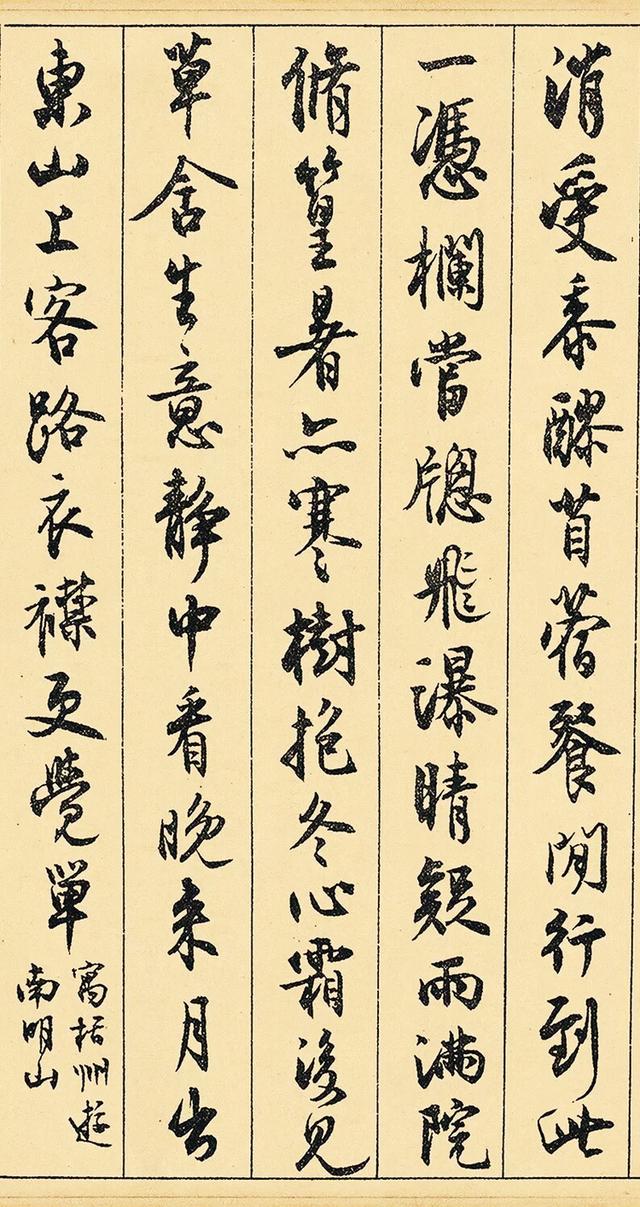 消受黍醪苜蓿餐閒行到此
一憑欄當牕飛瀑晴疑雨滿院
脩篁暑亦寒樹抱冬心霜後見
草含生意靜中看晚來月出
東山上客路衣襟更覺單
寓栝州遊
南明山